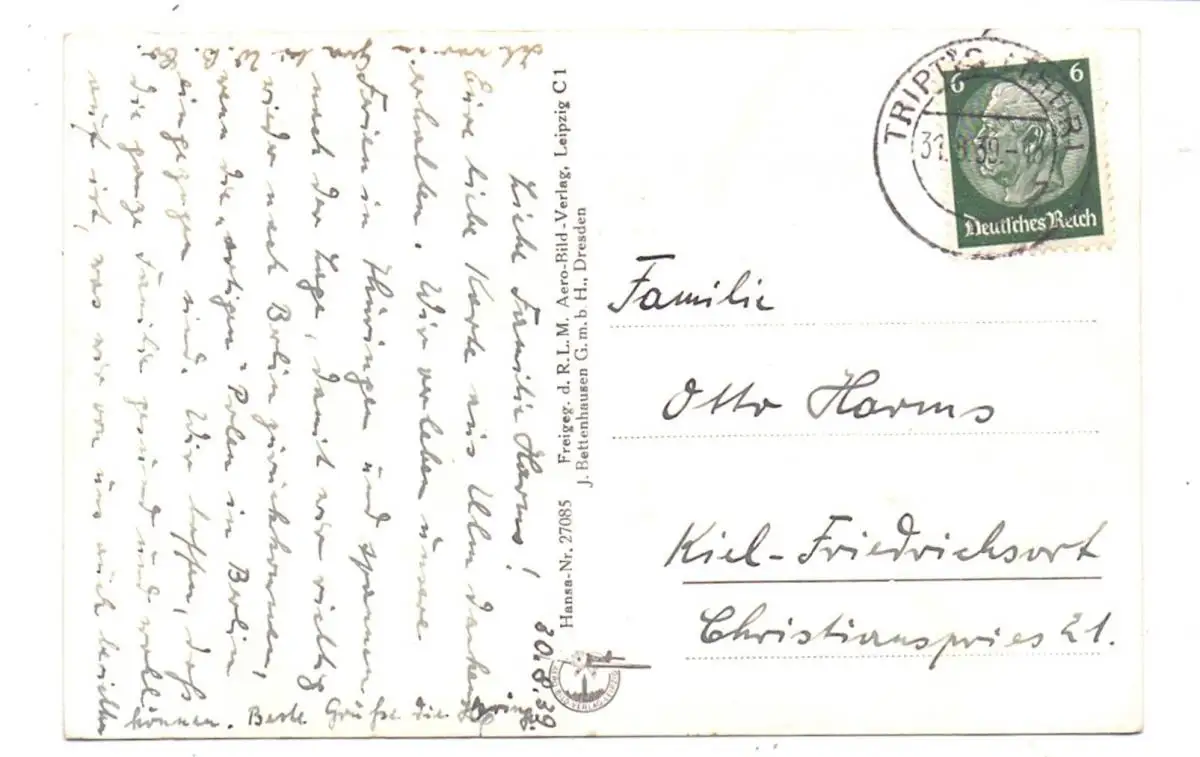 30.8.39
Liebe Familie Harms!
Eure liebe Karte aus Ulm dankend
erhalten. Wir verleben unsere
Ferien in Thüringen und spannen
nach der Lage, damit wir richtig
wieder nach Berlin zurückkommen,
wenn die „ Polen in Berlin
eingezogen sind. Wir hoffen, daß
die ganze Familie gesund und
auf ist, was wir von uns auch berichten
können. Beste Grüße die
Hansa-Nr. 27085 Freigeg. d. R.L.M. Aero-Bild-Verlag, Leipzig C 1
J. Bettenhausen G.m.b.H., Dresden
TRIPTIS (THÜR)
6 6
Deutsches Reich
Familie
Otto Harms
Kiel-Friedrichsort
Christianspries 21.